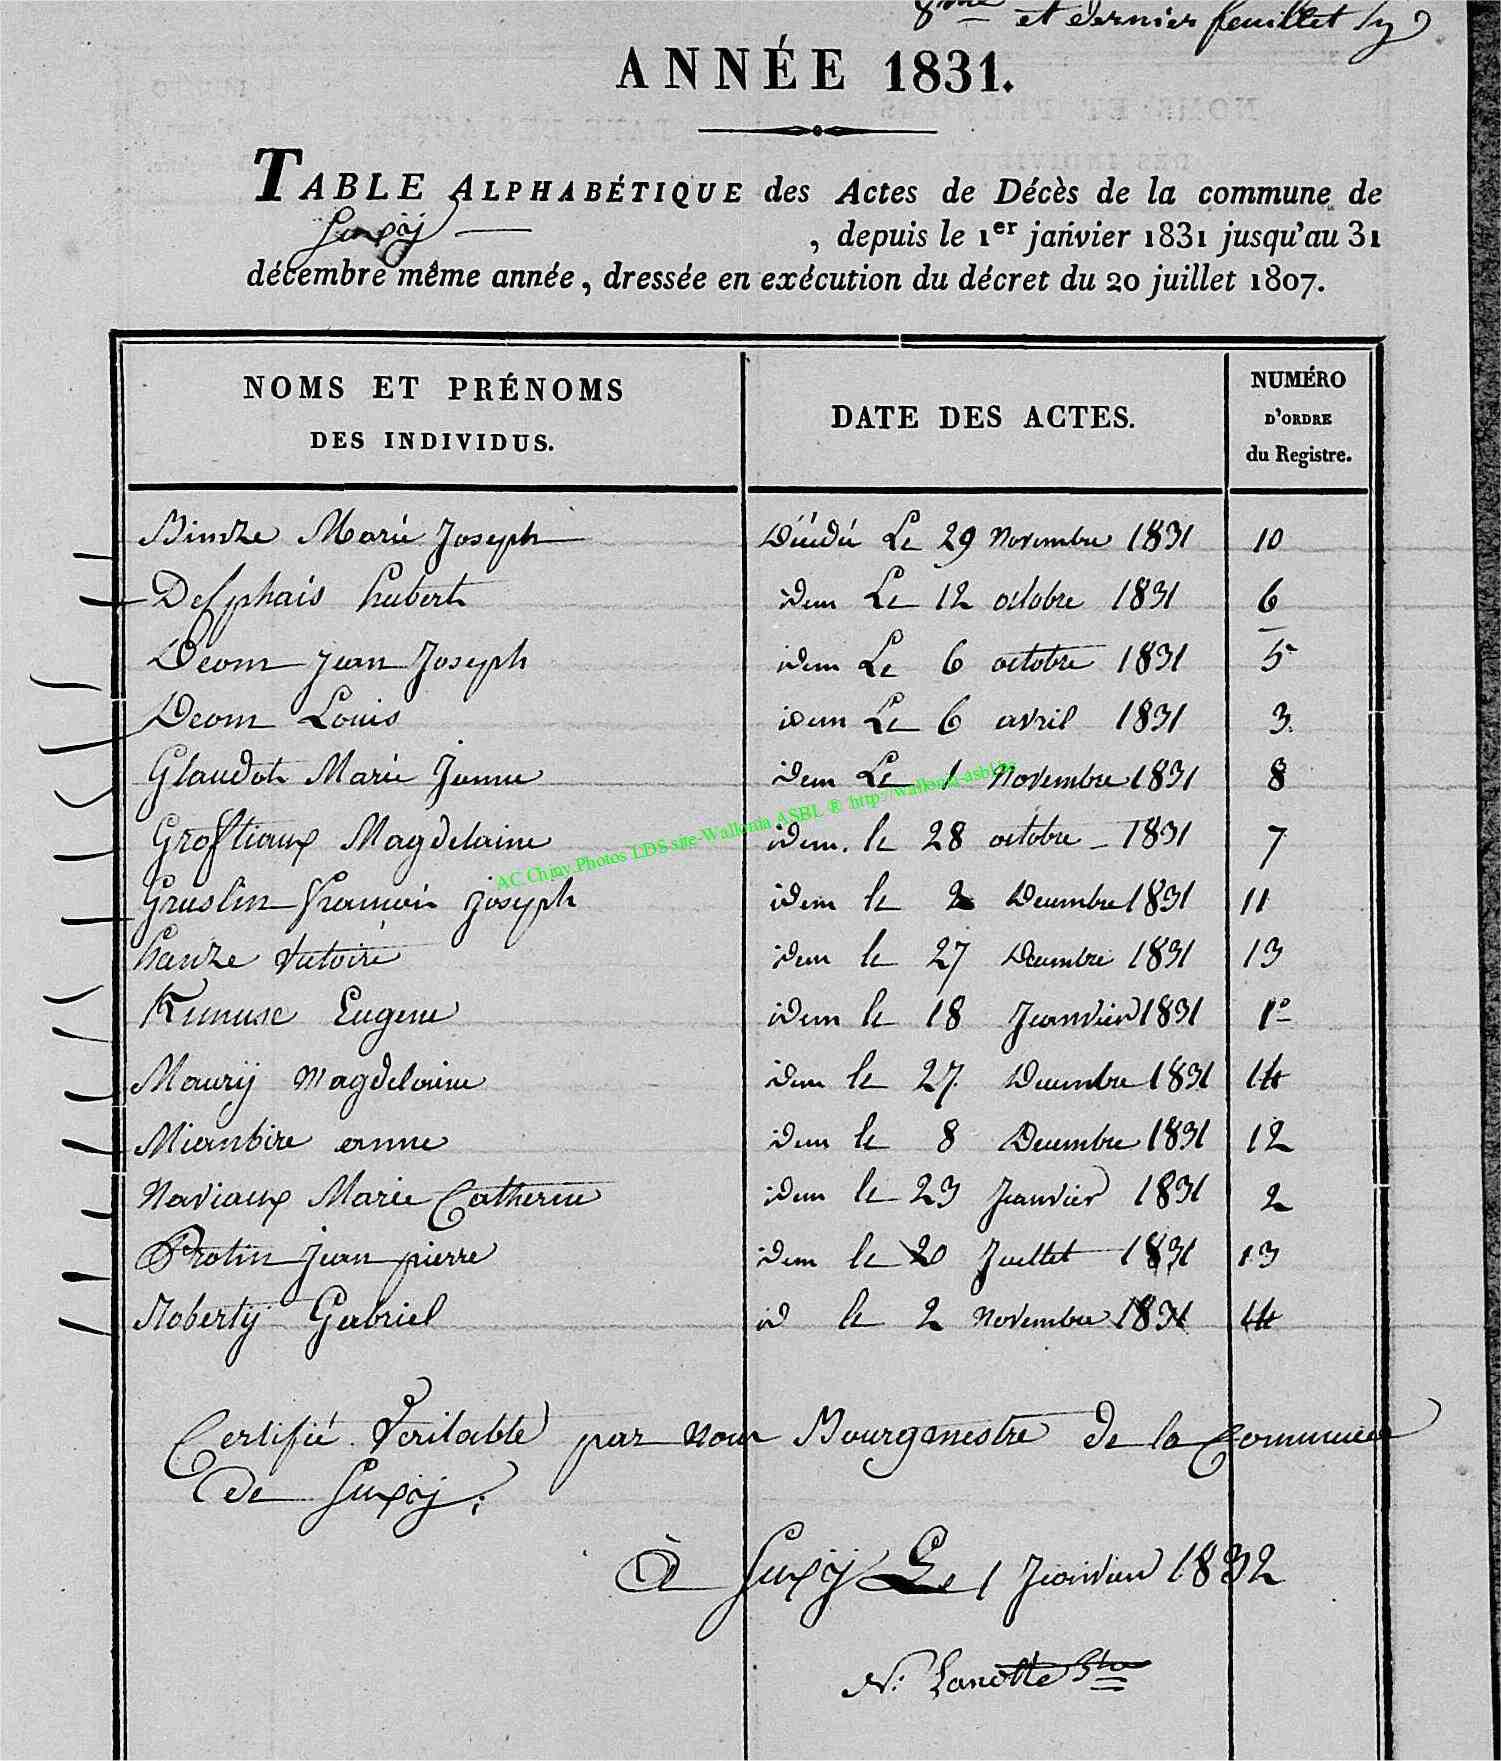 8me et dernier feuillet
ANNÉE 1831.
TABLE ALPHABÉTIQUE des Actes de Décès de la commune de
Suxÿ , depuis le 1er janvier 1831 jusqu'au 31
décembre même année, dressée en exécution du décret du 20 juillet 1807.
NOMS ET PRÉNOMS DES INDIVIDUS. DATE DES ACTES. NUMÉRO D'ORDRE du Registre.
Marie Joseph Décédé Le 29 Novembre 1831 10
Delphais hubert idem Le 12 octobre 1831 6
Deom jean Joseph idem Le 6 octobre 1831 5
Deom Louis idem Le 6 avril 1831 3
Glaudot Marie Jenne idem Le 1 Novembre 1831 8
Groftiaux Magdelaine idem. le 28 octobre 1831 7
AC Chiny Photos LDS site-Wallonia ASBL ® http://wallonia-asbl.be
Gruslin François joseph idem le 2 Decembre 1831 11
hanze Victoire idem le 27 Decembre 1831 13
Eugene idem le 18 Jeanvier 1831 1°
Maurÿ Magdelaine idem le 27 Decembre 1831 14
anne idem le 8 Decembre 1831 12
Naviaux Marie Catherine idem le 23 Jeanvier 1831 2
Protin jean pierre idem le 20 Juellet 1831 13
Robertÿ Gabriel id le 2 Novembre 1831 14
Certifié Veritable par nous Bourgmestre de la Commune
de Suxÿ;
à Suxÿ Le 1 Jeanvier 1832
N: Lanotte